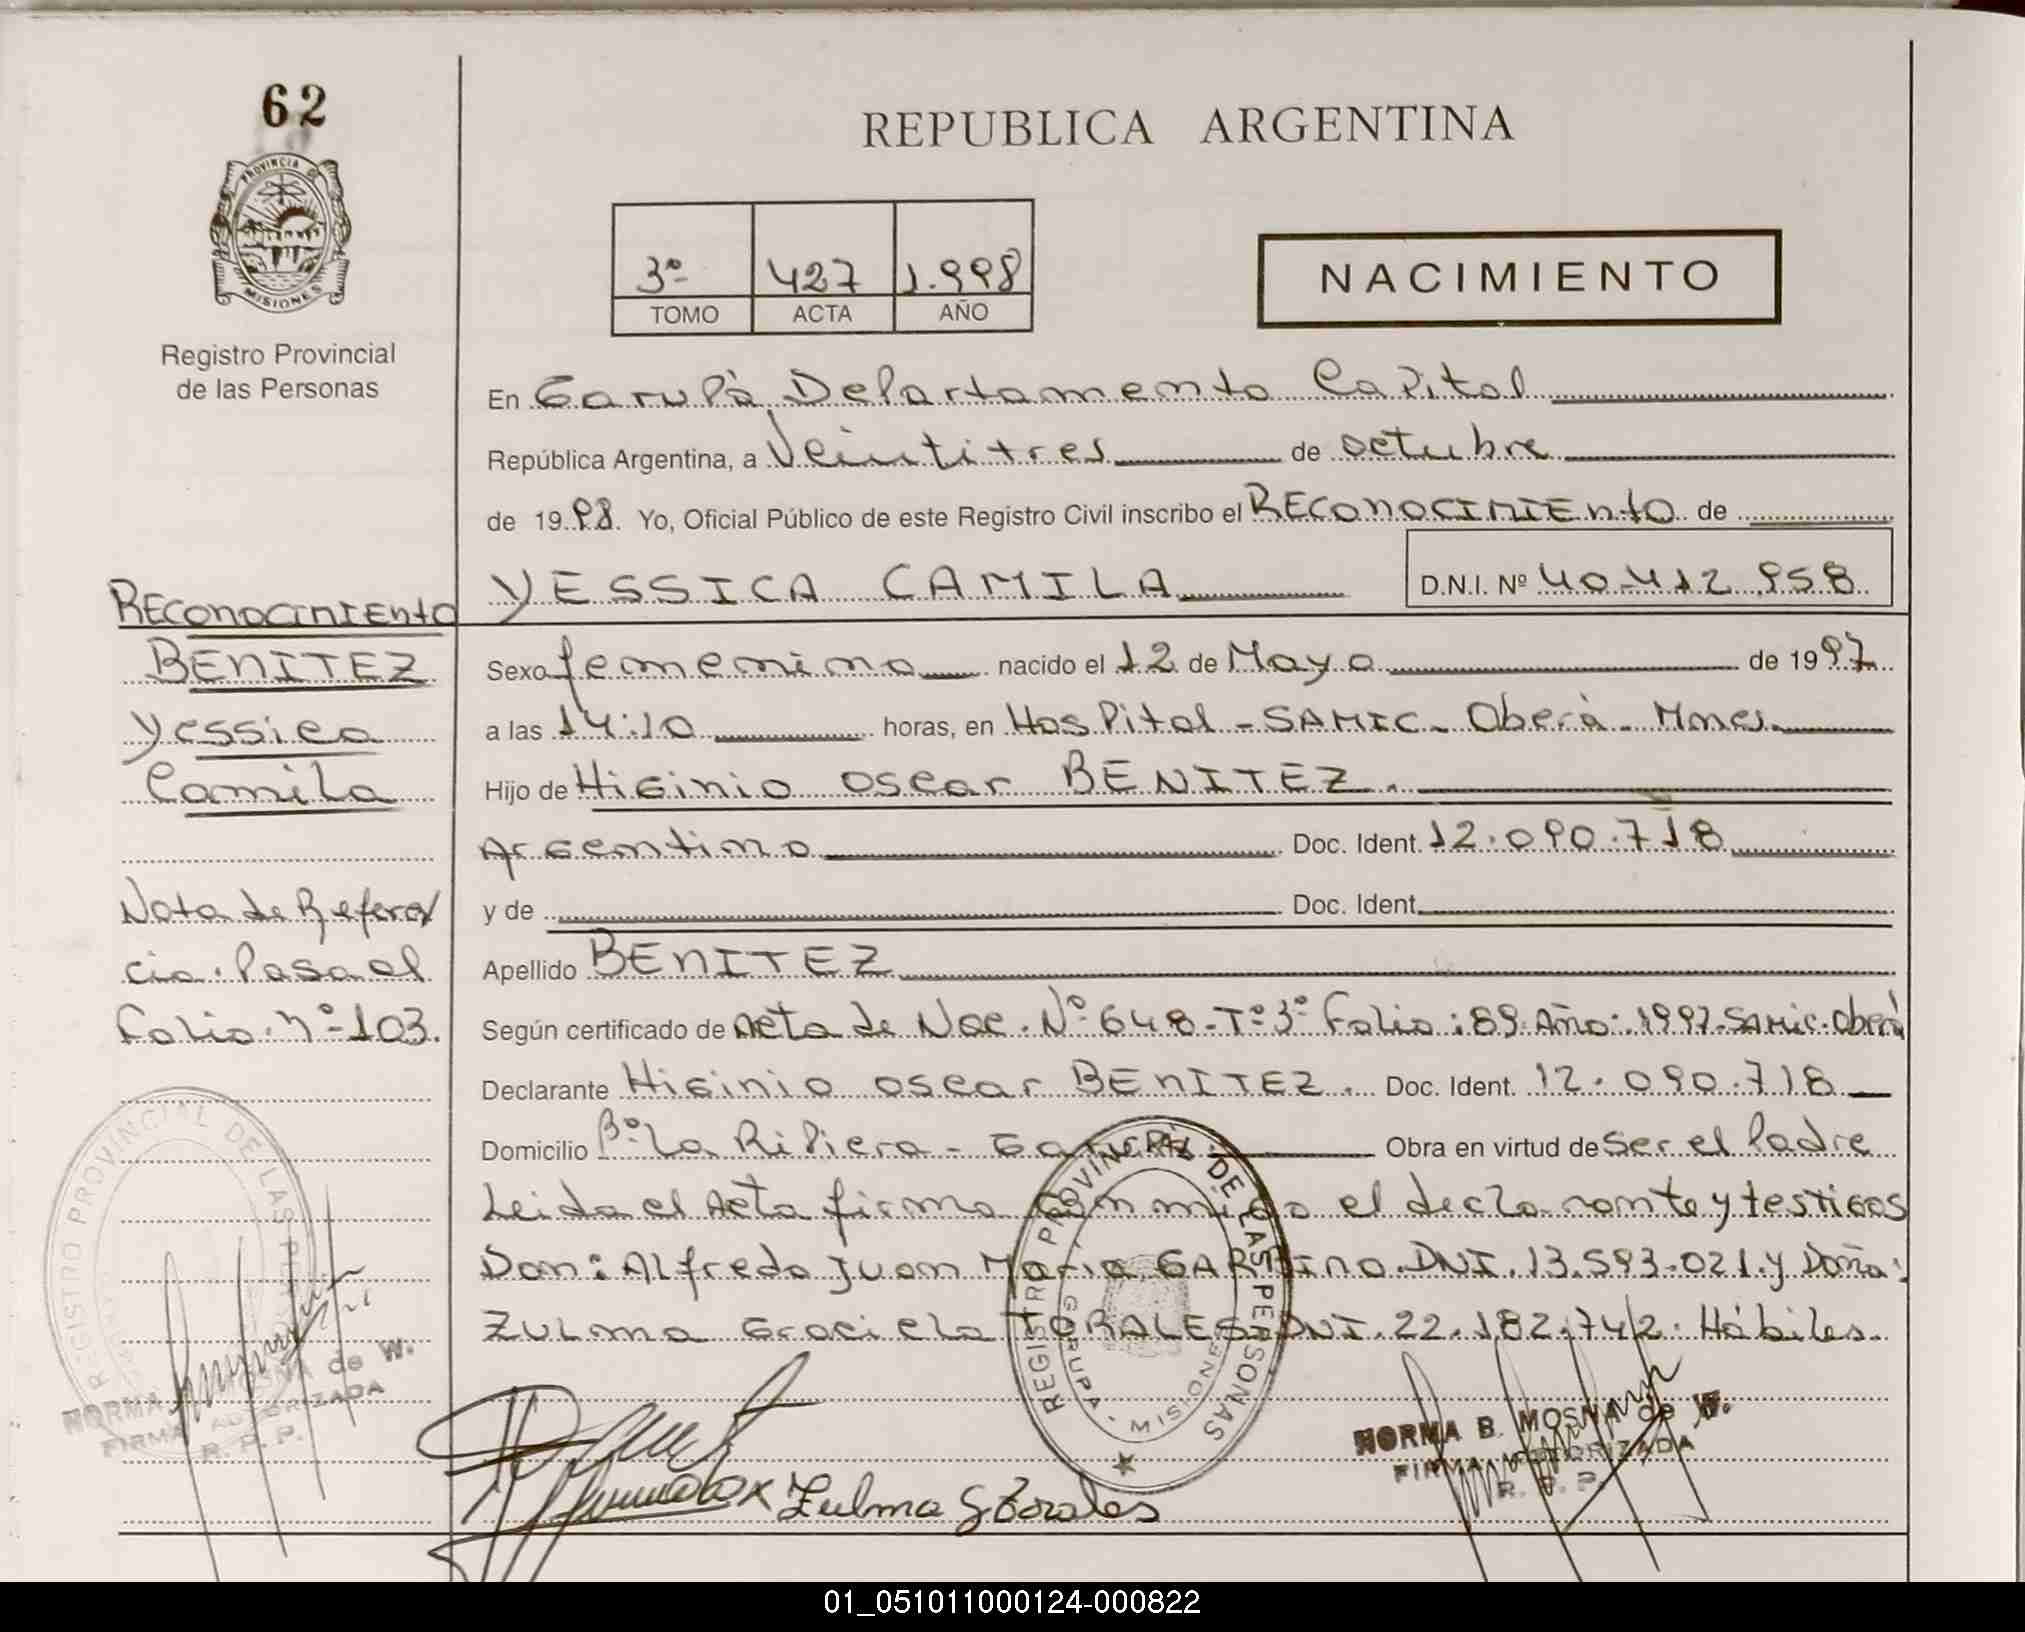 62
PROVINCIA DE
MISIONES
Registro Provincial
de las Personas
REPUBLICA ARGENTINA
3º 427 1.998
TOMO ACTA AÑO
NACIMIENTO
En Garupà Departamento Capital
República Argentina, a Veintitres de octubre
de 1998. Yo, Oficial Público de este Registro Civil inscribo el RECONOCIMIENTO de
YESSICA CAMILA D.N.I. Nº 40.412.958
RECONOCIMIENTO
BENITEZ
Yessica
Camila
Nota de Referen
cia: Pasa al
Folio nº 103.
Sexo femenino nacido el 12 de Mayo de 1997
a las 14:10 horas, en Hospital - SAMIC - Oberà - Mnes.
Hijo de Higinio Oscar BENITEZ.
Argentino Doc. Ident. 12.090.718
y de Doc. Ident.
Apellido BENITEZ
Según certificado de Acta de Nac. Nº 648 - Tº 3º Folio: 89 Año: 1997 - SAMIC - Oberá
Declarante Higinio Oscar BENITEZ. Doc. Ident. 12.090.718
Domicilio Bº La Rivera - Garupà Obra en virtud de Ser el Padre
Leida el Acta firma conmigo el declarante y testigos
Don: Alfredo Juan Maria DNI. 13.593.021 y Doña:
ZULMA Graciela DNI. 22.182.742. Hábiles.
REGISTRO PROVINCIAL DE LAS PERSONAS
GARUPA - MISIONES
REGISTRO PROVINCIAL DE LAS PERSONAS
NORMA MOSNA de W.
FIRMA AUTORIZADA
R. P. P.
Zulma G
NORMA B. MOSNA de W.
FIRMA AUTORIZADA
R. P. P.
01_051011000124-000822